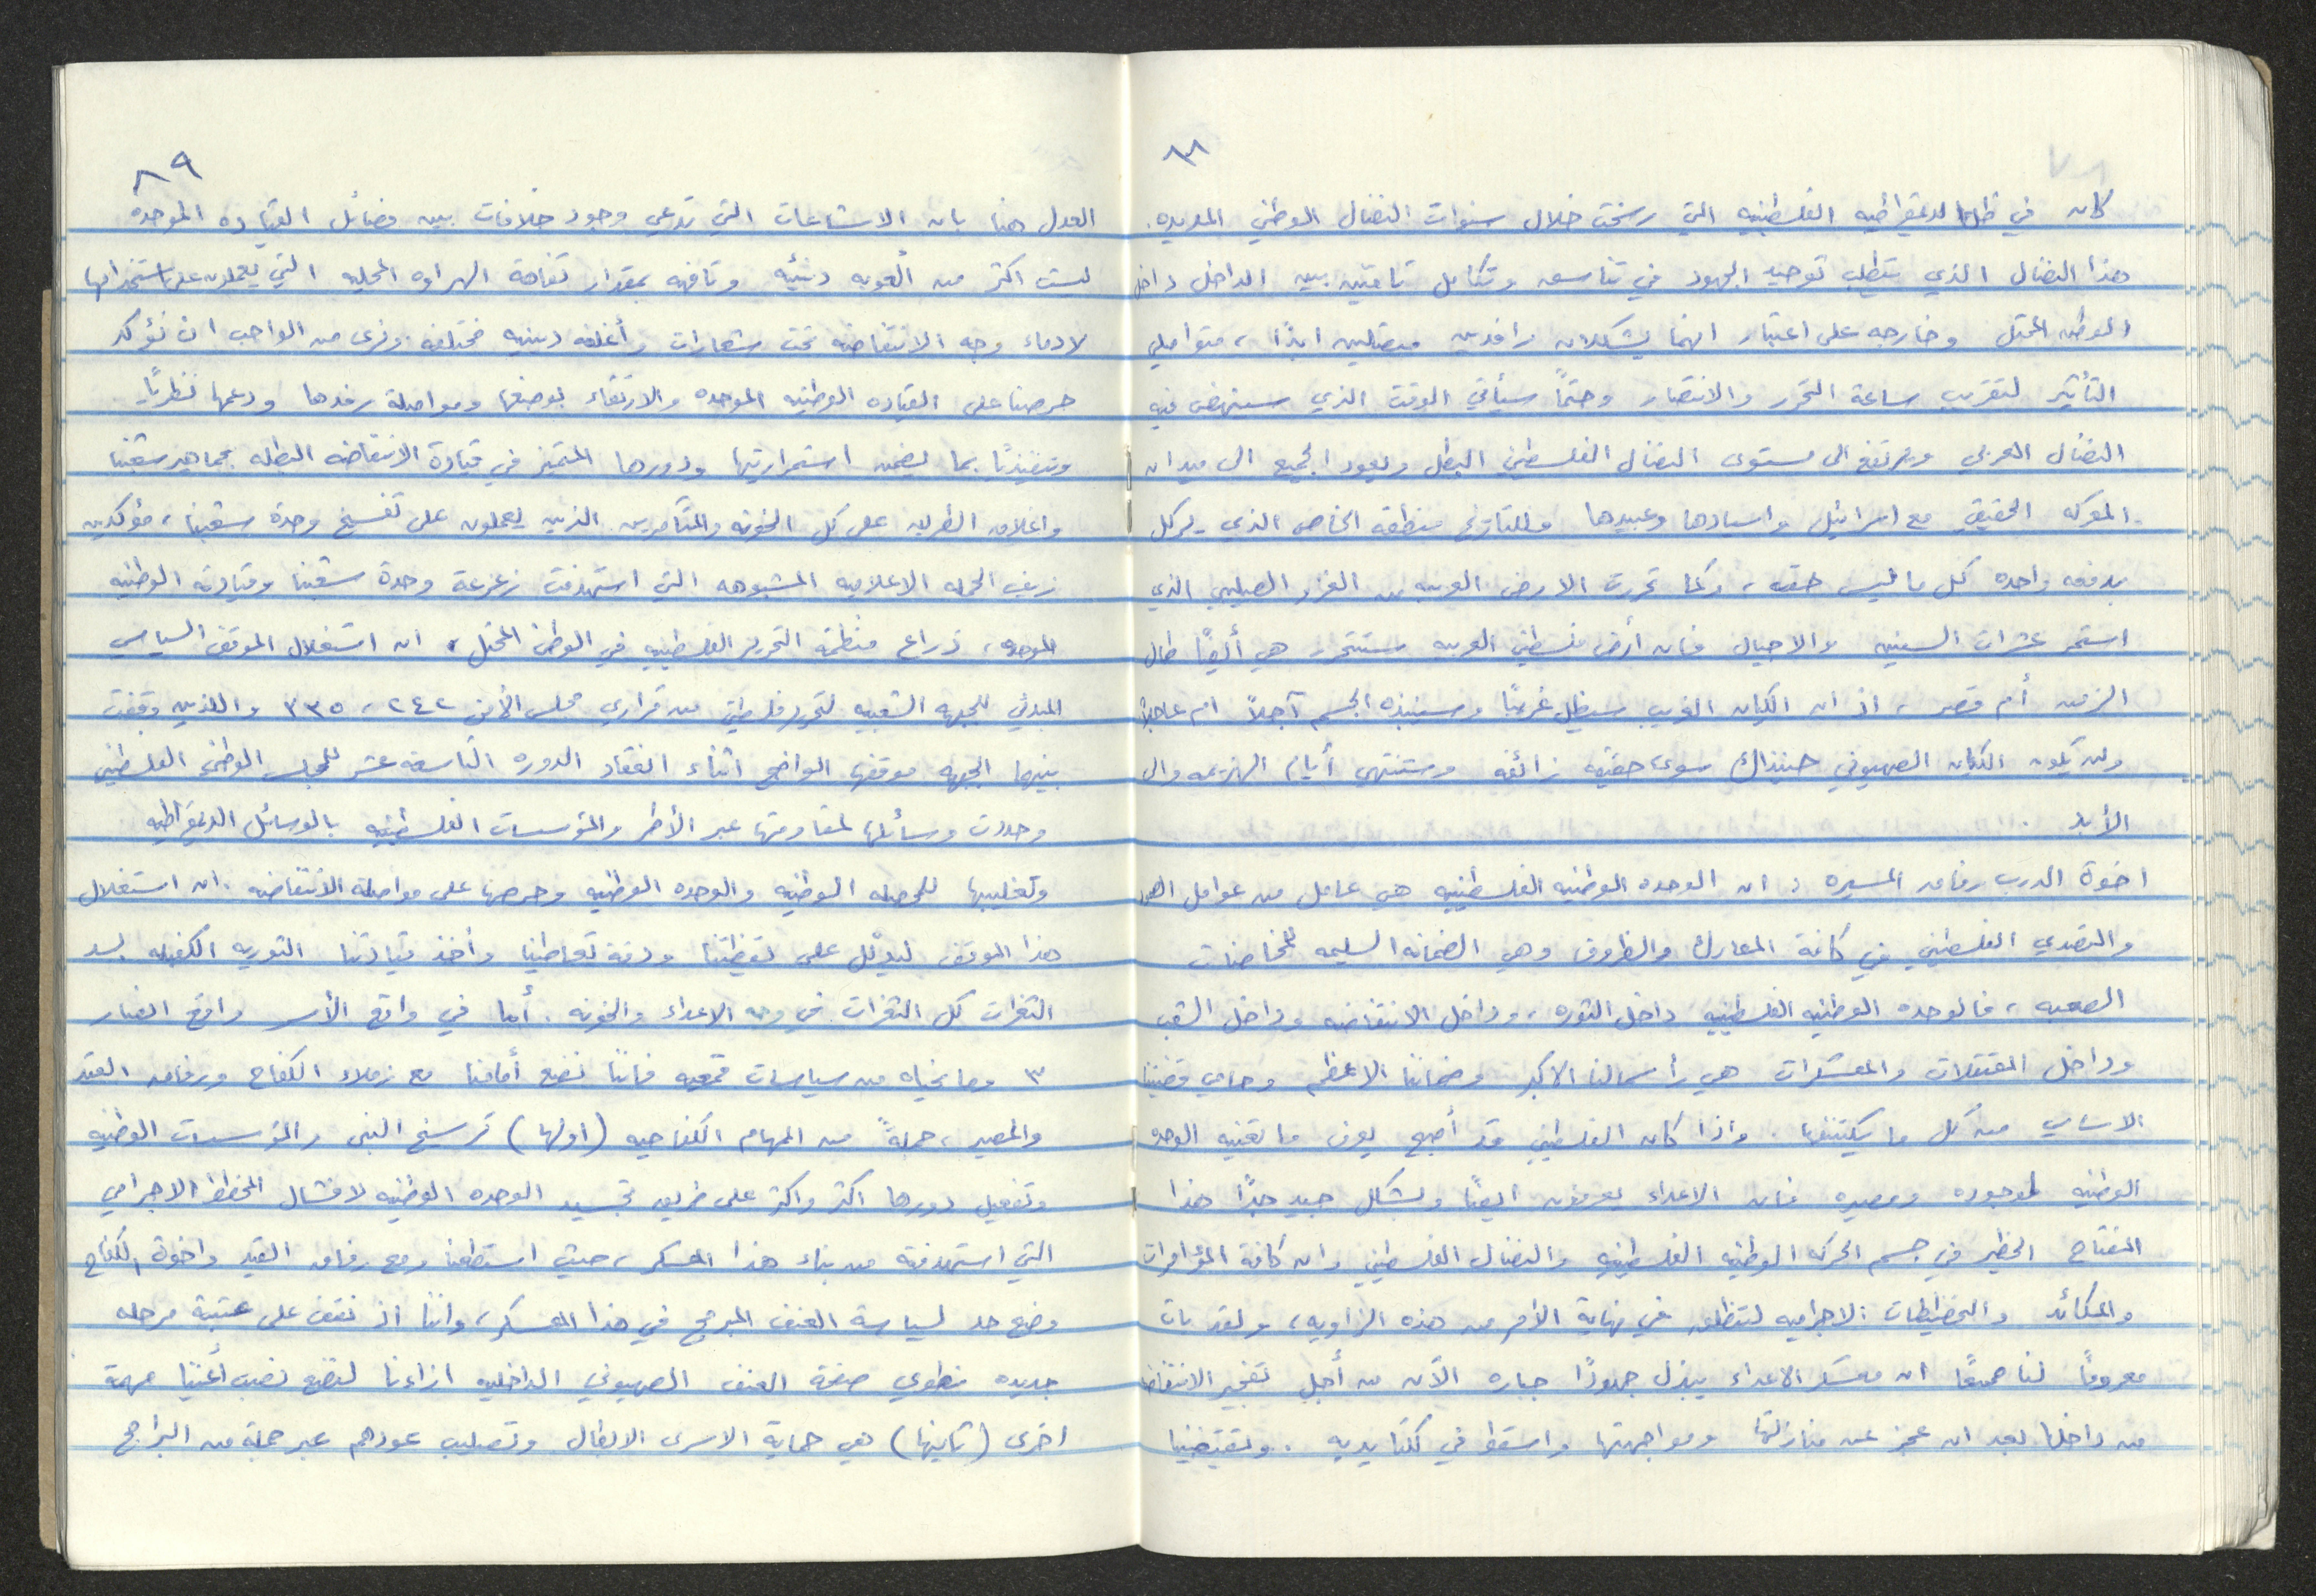 ٨٨
كان في ظل الديمقراطيه الفلسطينيه التي رسخت خلال سنوات النضال الوطني المديده.
هذا النضال الذي يتطلب توحيد الجهود في تناسق وتكامل تامين بين الداخل داخل
الوطن المحتل وخارجه على اعتبار انهما يشكلان رافدين متصلين ابداً، متواصلي
التأثير لتقريب ساعة التحرر والانتصار وحتماً سيأتي الوقت الذي سينهض فيه
النضال العربي ويرتفع الى مستوى النضال الفلسطيني البطل ويعود الجميع الى ميدان
المعركه الحقيقي مع اسرائيل واسيادها وعبيدها وللتاريخ منطقه الخاص الذي يركل
بدفعه واحده كل ما ليس حقه، وكما تحررت الارض العربيه من الغزو الصليبي الذي
استمر عشرات السنين والاجيال فان أرض فلسطين العربيه ستتحرر هي أيضاً طال
الزمن أم قصر، اذ ان الكيان الغريب سيظل غريباً وسينبذه الجسم آجلاً ام عاجلاً
ولن يكون الكيان الصهيوني حينذاك سوى حقيقه زائفه وستنتهي أيام الهزيمه والى
الأبد .
اخوة الدرب رفاق المسيره : ان الوحده الوطنيه الفلسطينيه هي عامل من عوامل
والتصدي الفلسطيني في كافة المعارك والظروف وهي الضمانه السليمه للمخاضات
الصعبه، فالوحده الوطنيه الفلسطينيه داخل الثوره، وداخل الانتفاضه وداخل الشعب
وداخل المعتقلات والمعسكرات هي رأسمالنا الاكبر وضماننا الاعظم وحامي قضيتنا
الاساسي من كل ما يكتنفها. واذا كان الفلسطيني قد أصبح يعرف ما تعنيه الوحده
الوطنيه لوجوده ومصيره فان الاعداء يعرفون ايضاً وبشكل جيد جداً هذا
المفتاح الخطير في جسم الحركه الوطنيه الفلسطينيه والنضال الفلسطيني وان كافة المؤامرات
والمكائد والتخطيطات الاجراميه لتنطلق في نهاية الأمر من هذه الزاويه، ولقد بات
معروفاً لنا جميعاً ان معسكر الاعداء يبذل جهوداً جباره الآن من أجل تفجير الانتفاضه
من داخلها بعد ان عجز عن منازلتها ومواجهتها واسقط في كلتا يديه . ويقتضينا
٨٩
العدل هنا بان الاشاعات التي تدعي وجود خلافات بين فصائل القياده الموحده
ليست اكثر من ألعوبه دنيئه وتافهه بمقدار تفاهة الهراوه المحليه التي يعملون على استخدامها
لادماء وجه الانتفاضه تحت شعارات وأغلفه دينيه مختلفه ونرى من الواجب ان نؤكد
حرصنا على القياده الوطنيه الموحده والارتقاء بوضعها ومواصلة رفدها ودعمها نظرياً
وتنفيذياً بما يضمن استمراريتها ودورها المتميز في قيادة الانتفاضه البطله بجماهير شعبنا
واغلاق الطريق على كل الخونه والمتآمرين الذين يعملون على تفسيخ وحدة شعبنا، مؤكدين
زيف الحمله الاعلاميه المشبوهه التي استهدفت زعزعة وحدة شعبنا وقيادته الوطنيه
الموحده، ذراع منظمة التحرير الفلسطينيه في الوطن المحتل، ان استغلال الموقف السياسي
المبدئي للجبهه الشعبيه لتحرير فلسطين من قراري مجلس الأمن ٢٤٢، ٣٣٥ واللذين وقفت
بينهما الجبهه موقفها الواضح اثناء انعقاد الدوره التاسعة عشر للمجلس الوطني الفلسطيني
وحددت وسائلها لمقاومتها عبر الأطر والمؤسسات الفلسطينيه بالوسائل الديمقراطيه
وتغليبها للمصلحه الوطنيه والوحده الوطنيه وحرصها على مواصلة الانتفاضه. ان استغلال
هذا الموقف ليدلل على يقظتنا ودقة تعاطينا وأخذ قيادتنا الثوريه الكفيله لسد
الثغرات كل الثغرات في وجه الاعداء والخونه. أما في واقع الأسر واقع انصار
٣ وما نحياه من سياسات قمعيه فاننا نضع أمامنا مع زملاء الكفاح ورفاق القيد
والمصير، جملةً من المهام الكفاحيه (اولها) ترسيخ البنى والمؤسسات الوطنيه
وتفعيل دورها اكثر واكثر على طريق تجسيد الوحده الوطنيه لافشال المخطط الاجرامي
التي استهدفته من بناء هذا المعسكر، حيث استطعنا ومع رفاق القيد واخوة الكفاح
وضع حد لسياسة العنف المبرمج في هذا المعسكر، واننا اذ نقف على عتبة مرحله
جديده نطوي صفحة العنف الصهيوني الداخليه ازاءنا لنضع نصب أعيننا مهمة
اخرى (ثانيها) هي حماية الاسرى الابطال وتصليب عودهم عبر جملة من البرامج